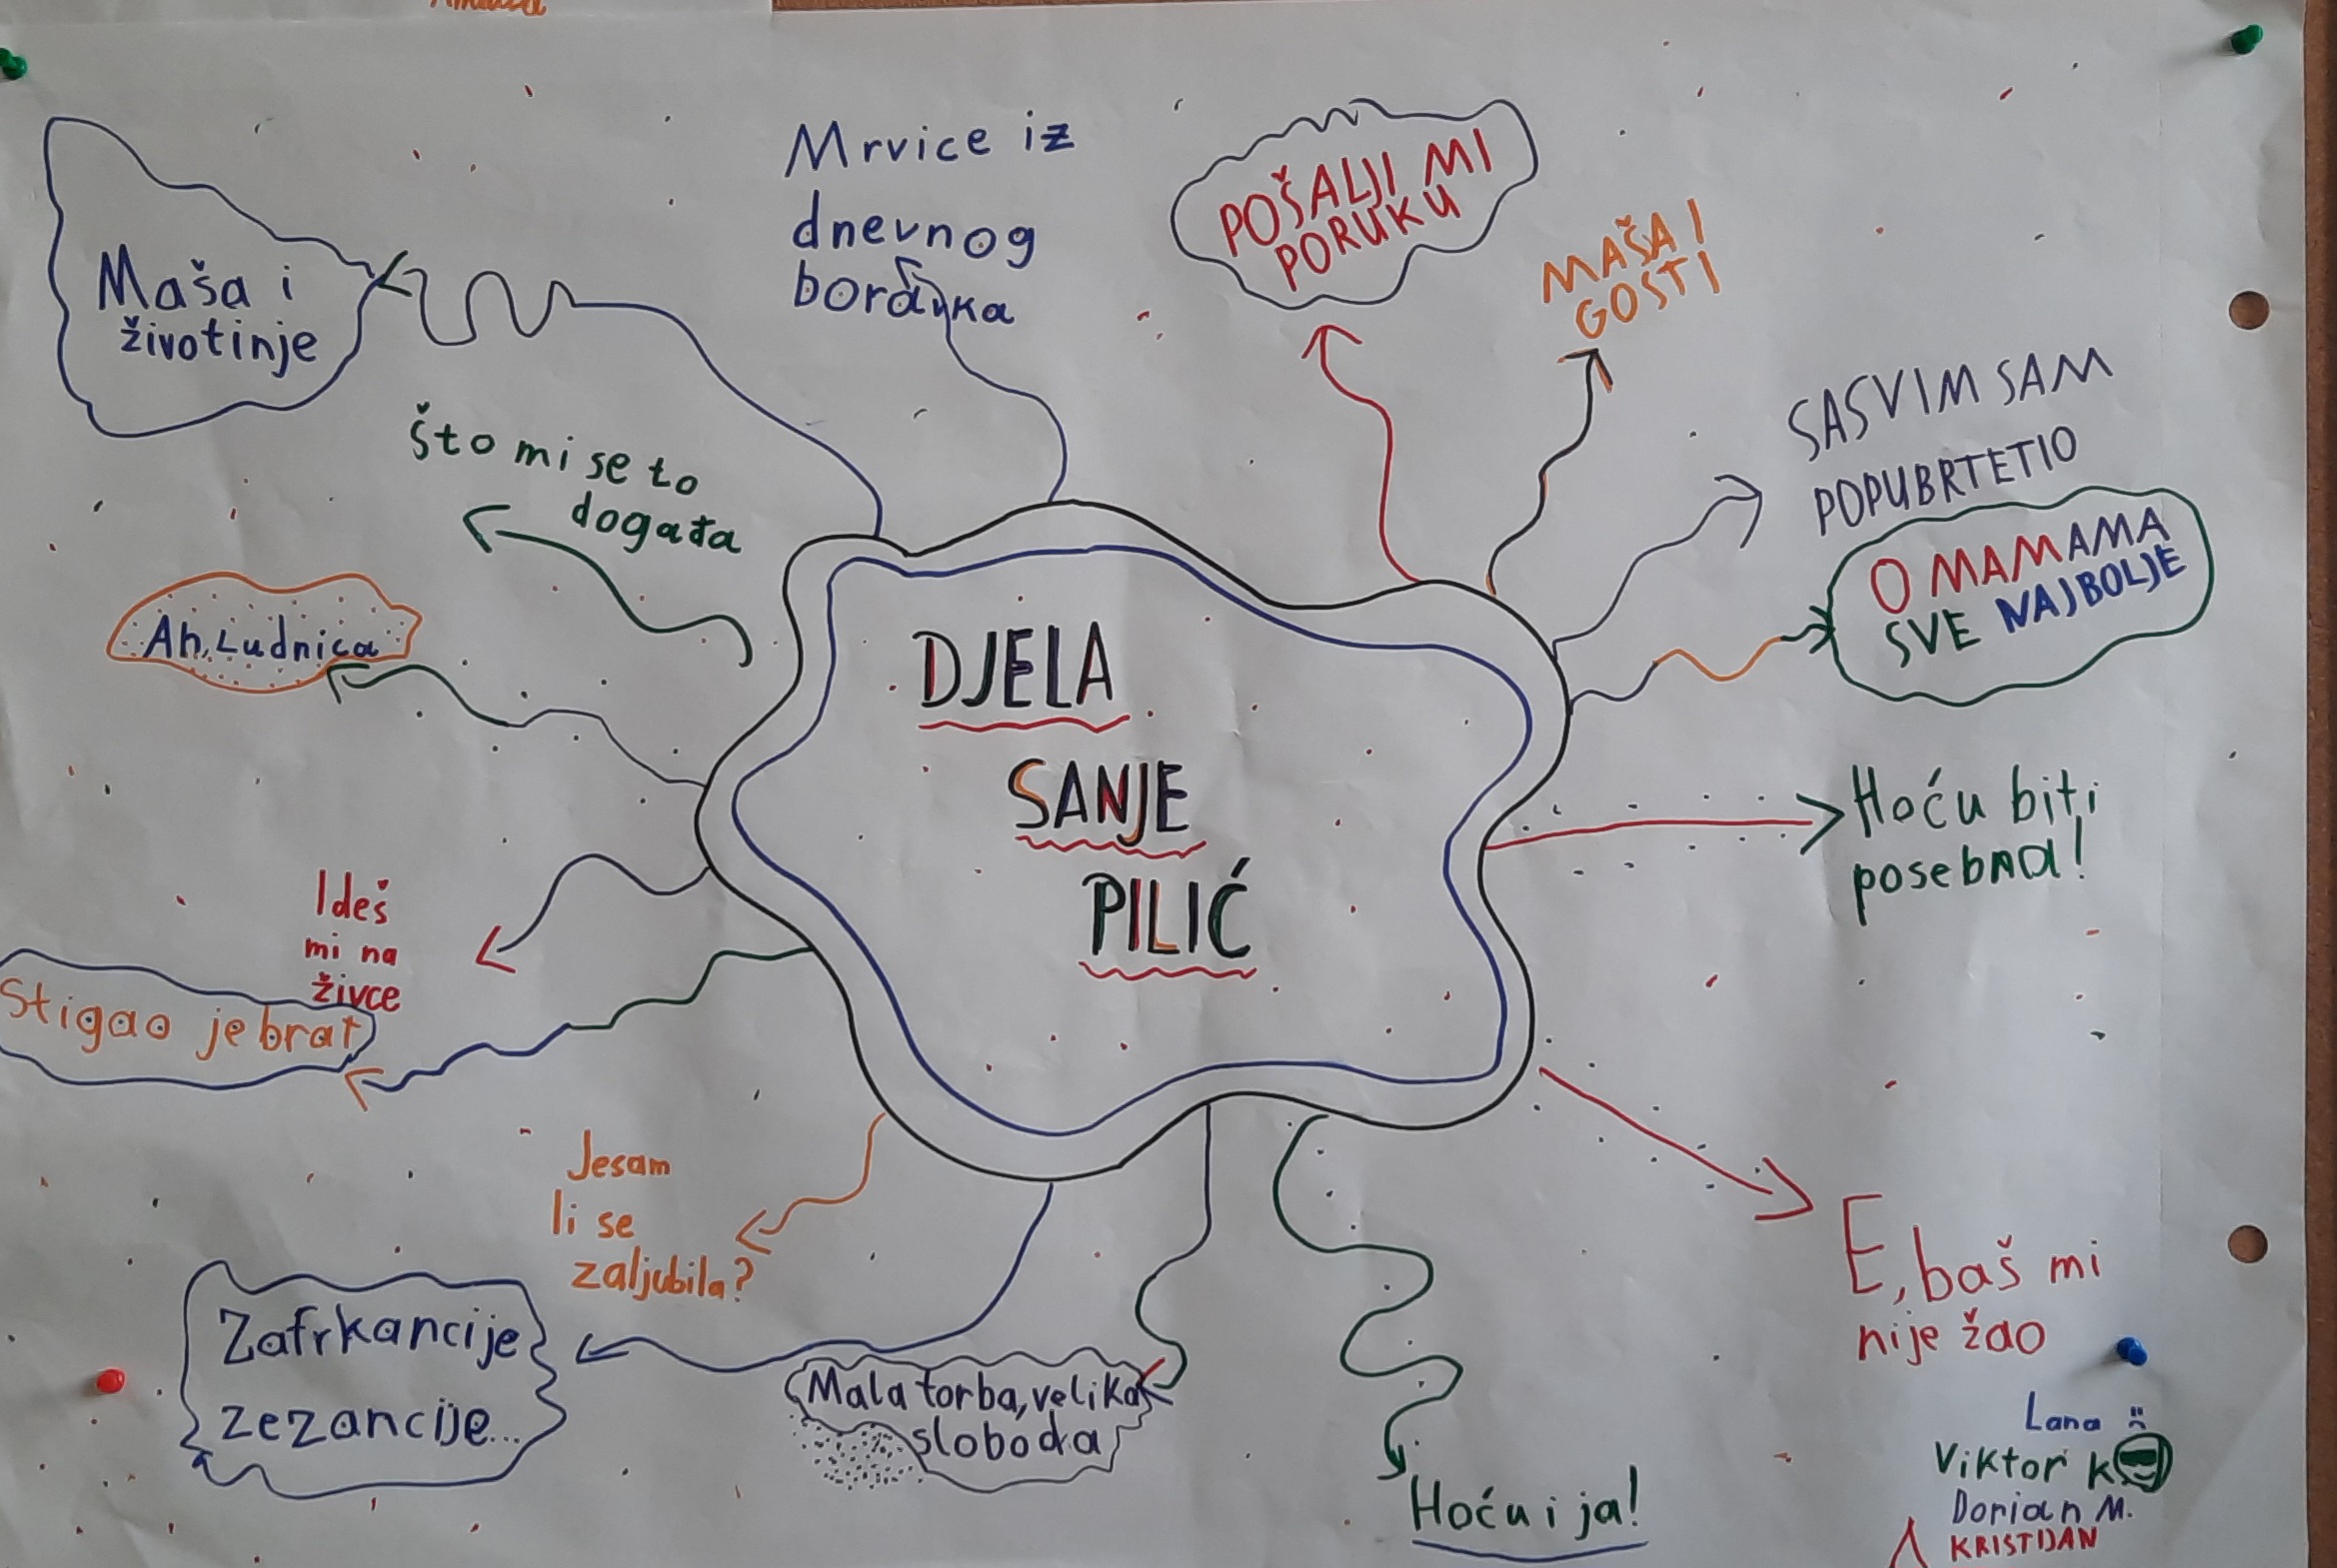 Mrvice iz
dnevnog
boravka
POŠALJI MI
PORUKU
MAŠA I
GOSTI
Maša i
životinje
SASVIM SAM
POPUBRTETIO
Što mi se to
događa
O MAMAMA
SVE NAJBOLJE
Ah, Ludnica
DJELA
SANJE
PILIĆ
Hoću biti
posebna!
Ideš
mi na
živce
Stigao je brat
Jesam
li se
zaljubila?
E, baš mi
nije žao
Zafrkancije
zezancije...
Mala torba, velika
sloboda
Hoću i ja!
Lana
Viktor K.
Dorian M.
KRISTIJAN